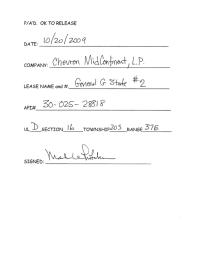 P/A'D. OK TO RELEASE
DATE: 10/20/2009
COMPANY: Chevron MidContinent, L.P.
LEASE NAME and #. General G State #2
API# 30-025-28818
UL D SECTION 16 TOWNSHIP 20S RANGE 37E
SIGNED: